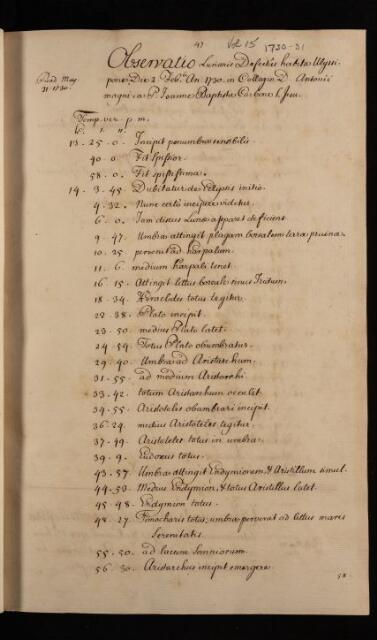 47 Vol 15 1730-31
Observatio Lunaris Defectus habita Ulyssi-
pone, Die 2. Feb. An. 1730. in Collegio D. Antonii
magni a P. Joanne Baptista Carbone S. Jesu.
Read May
21. 1730.
Temp. ver. p. m.
h. ' "
13 - 25 . 0 . Incipit penumbra sensibilis.
40 . 0 Fit spissior.
58 . 0 . Fit spississima.
14 . 3 . 45 . Dubitatur de Eclipsis initio.
4 . 32 . Nunc certò incipere videtur.
6 . 0 . Jam discus Lunæ apparet deficiens.
9 . 47 . Umbra attingit plagam borealem terræ pruinæ.
10 . 25 pervenit ad harpalum.
11 . 6 . medium harpali tenet.
16 . 15 . Attingit littus boreale sinus Iridum.
18 . 34 . Heraclides totus tegitur.
22 . 38 . Plato incipit.
23 . 50 . medius Plato latet.
24 . 59 . Totus Plato obumbratur.
29 . 40 . Umbra ad Aristarchum.
31 . 55 . ad medium Aristarchi.
33 . 42 . totum Aristarchum occulit.
34 . 55 . Aristoteles obumbrari incipit.
36 . 29 . medius Aristoteles tegitur.
37 . 49 . Aristoteles totus in umbra.
39 . 9 . Eudoxus totus.
43 . 57 . Umbra attingit Endymionem, & Aristillum simul.
44 . 53 . Medius Endymion, & totus Aristillus latet.
45 . 48 . Endymion totus.
48 . 27 . Timocharis totus, umbra pervenit ad littus maris
Serenitatis.
55 . 50 . ad lacum Somniorum.
56 . 30 . Aristarchus incipit emergere.
58 .